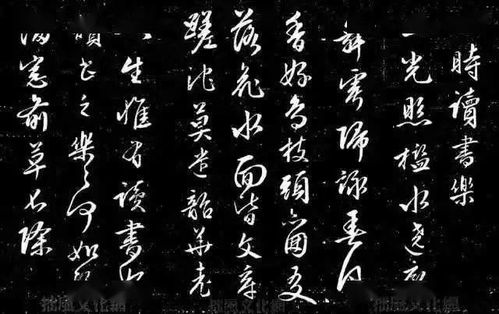 時讀書樂
光照檻水遶廊
舞雩歸詠春風
香好鳥枝頭亦朋友
落花水面皆文章
蹉跎莫遣韶華老
生惟有讀書好
讀書之樂樂何如綠
滿窓前草不除